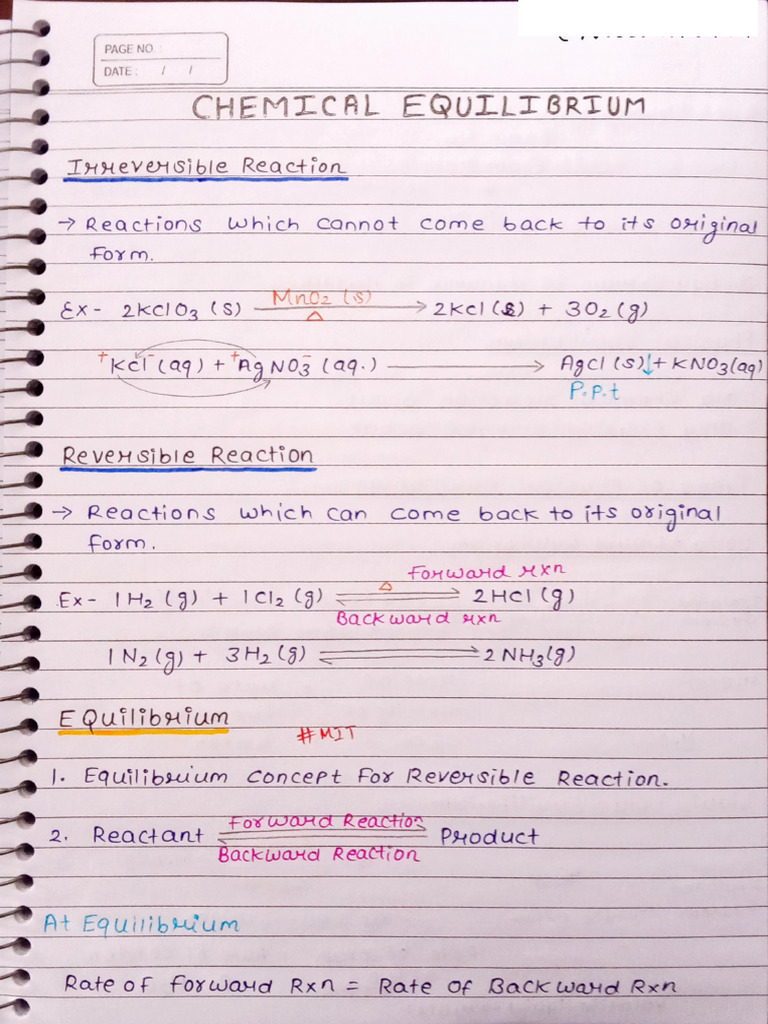 PAGE NO.
DATE: / /
CHEMICAL EQUILIBRIUM
Irreversible Reaction
→ Reactions which cannot come back to its original
form.
Ex- 2KClO3 (s) MnO2 (s) Δ → 2KCl (s) + 3O2 (g)
+KCl- (aq) + +AgNO3- (aq.) → AgCl (s)↓ + KNO3(aq)
P.p.t
Reversible Reaction
→ Reactions which can come back to its original
form.
Forward rxn
Ex- 1H2 (g) + 1Cl2 (g) Δ ⇌ 2HCl (g)
Backward rxn
1N2(g) + 3H2(g) ⇌ 2NH3(g)
Equilibrium
#MIT
1. Equilibrium concept for Reversible Reaction.
Forward Reaction
2. Reactant ⇌ Product
Backward Reaction
At Equilibrium
Rate of forward Rxn = Rate of Backward Rxn